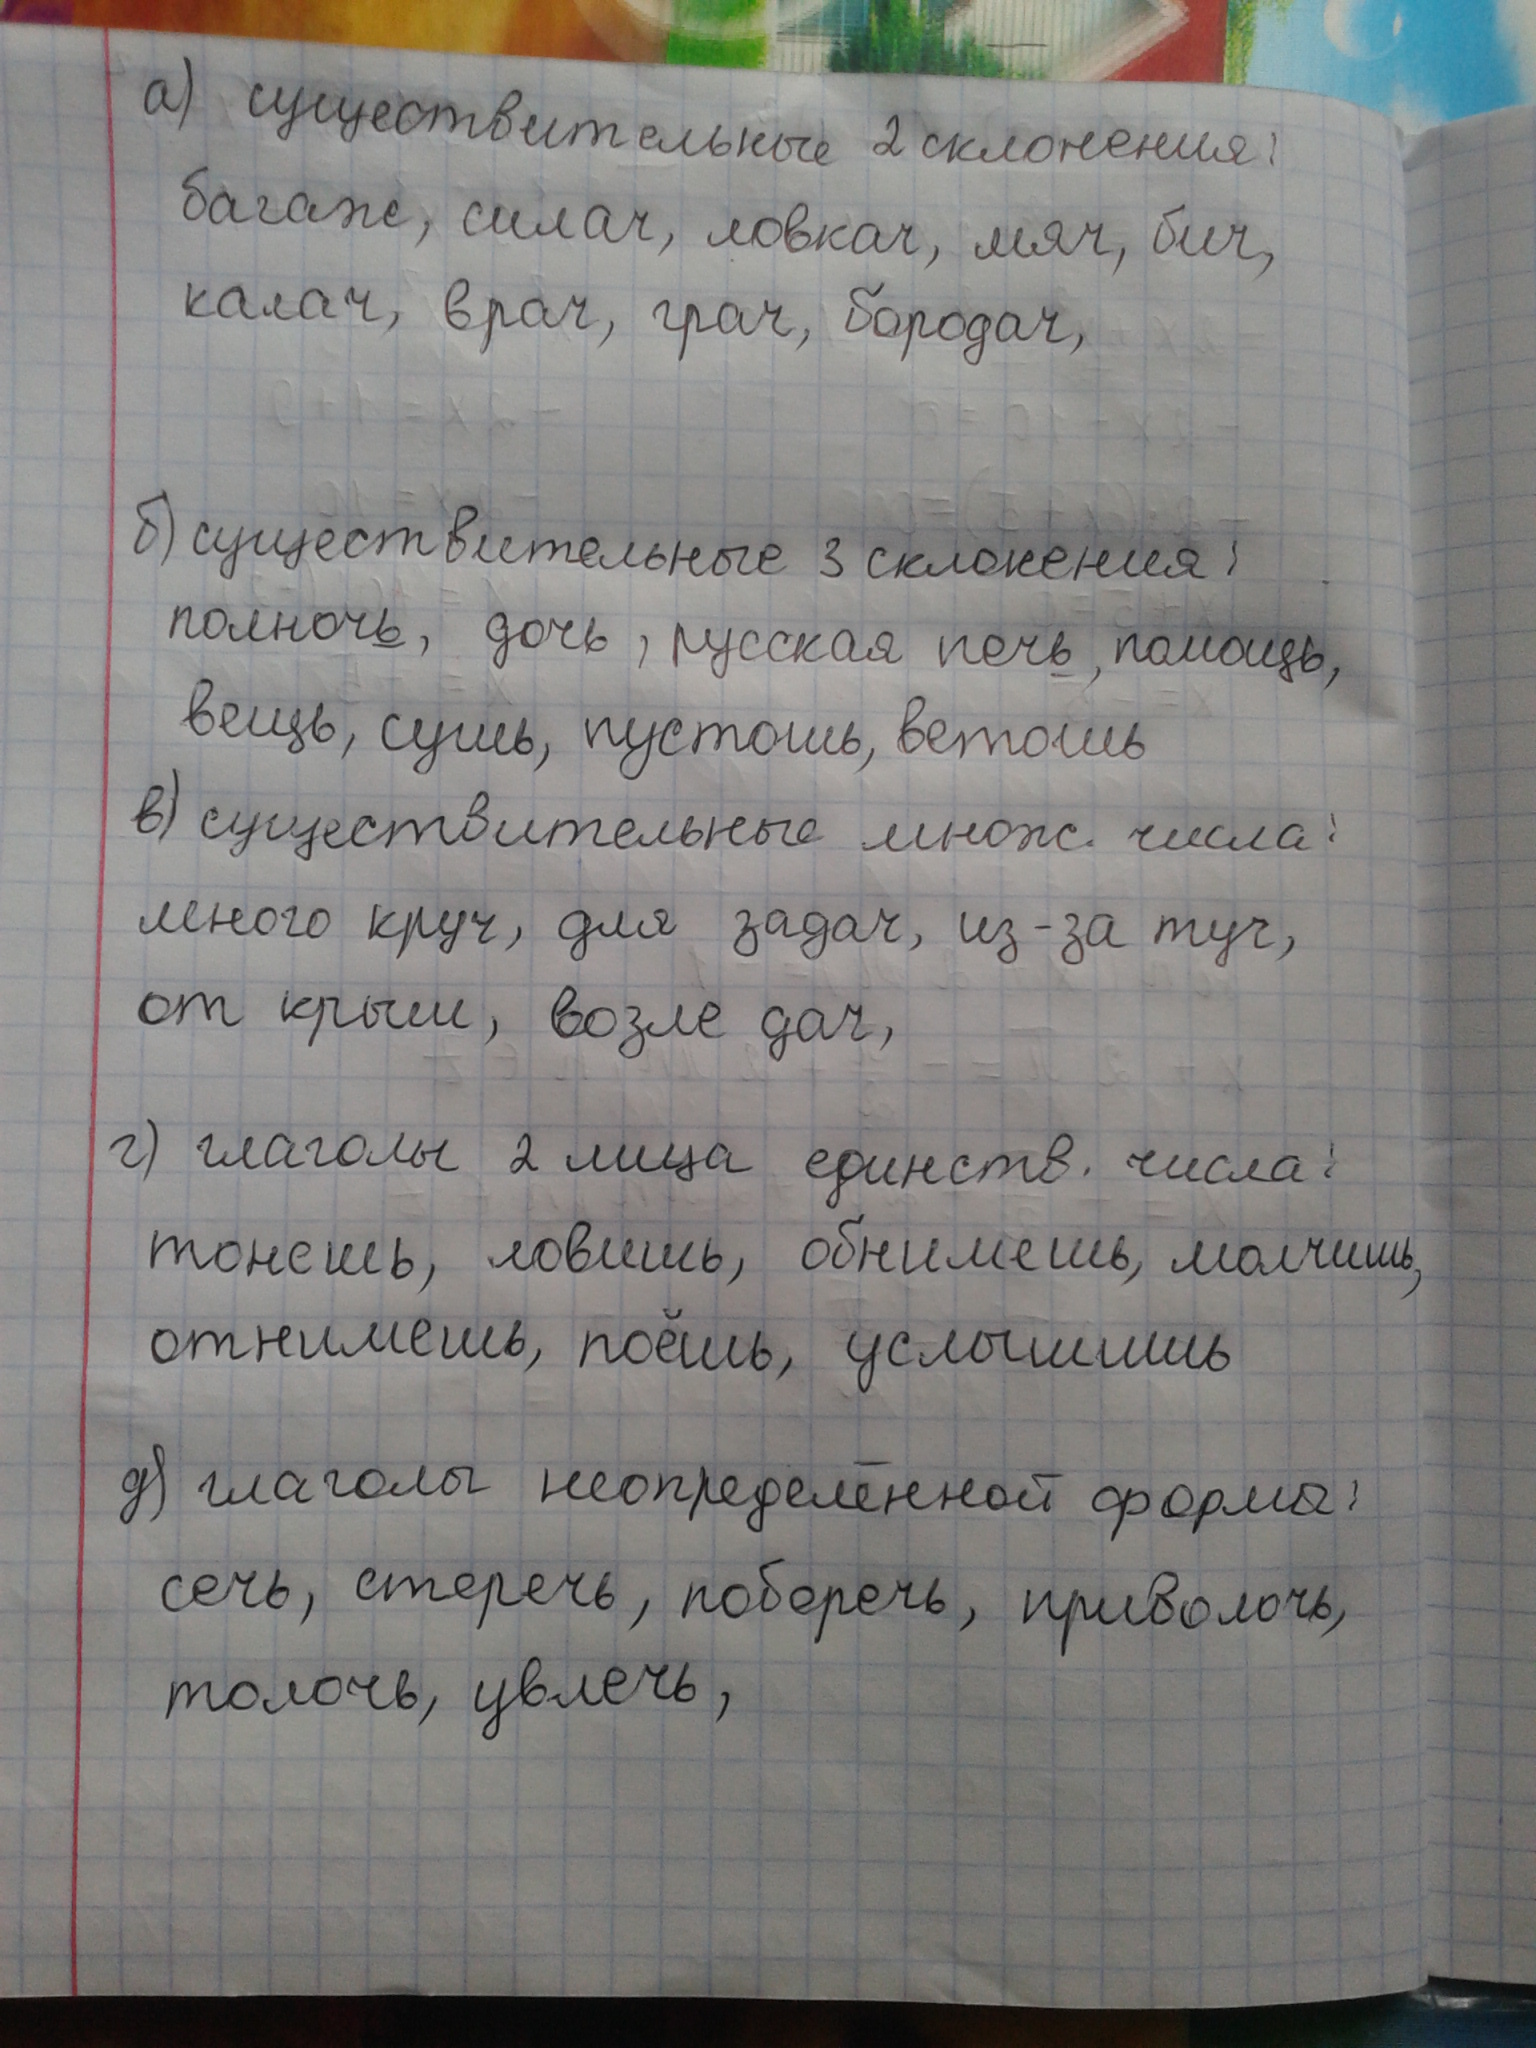 а) существительные 2 склонения:
багаж, силач, ловкач, мяч, бич,
калач, врач, грач, бородач,
б) существительные 3 склонения:
полночь, дочь, русская печь, помощь,
вещь, сушь, пустошь, ветошь
в) существительные множ. числа:
много круч, для задач, из-за туч,
от крыш, возле дач,
г) глаголы 2 лица единств. числа:
тонешь, ловишь, обнимешь, молчишь,
отнимешь, поёшь, услышишь
д) глаголы неопределённой формы:
сечь, стеречь, поберечь, приволочь,
толочь, увлечь,